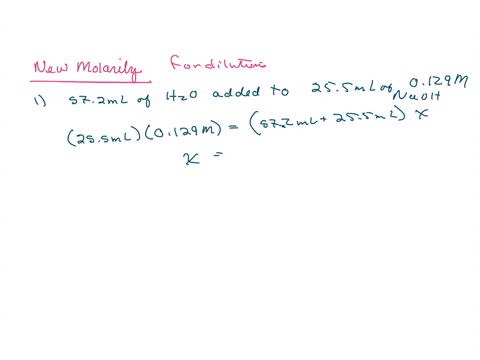 New Molarity for dilution
1) 57.2mL of H2O added to 25.5mL of 0.129M NaOH
(25.5mL)(0.129M) = (57.2mL + 25.5mL) x
x =